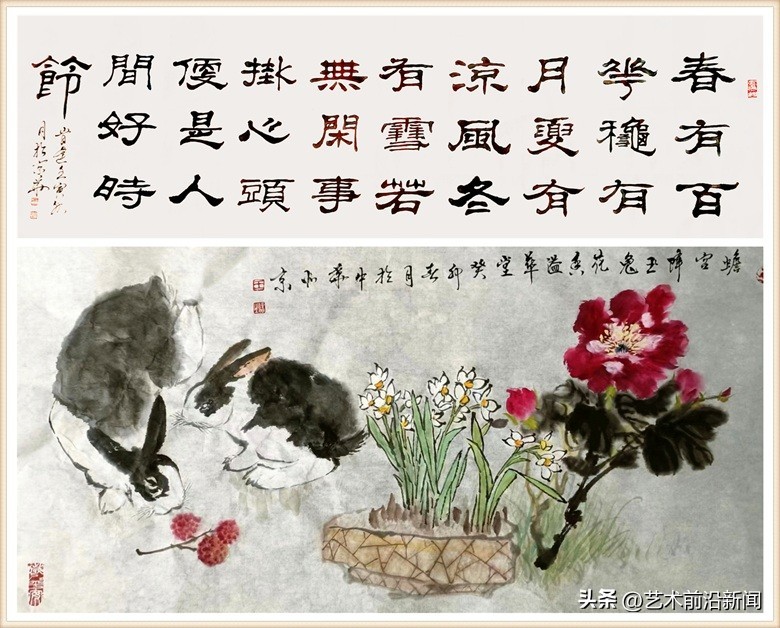 春有百
花龝有
月夏有
涼風冬
有雪若
無閑事
掛心頭
便是人
間好時
節
蟾宮降玉兔花香溢華堂癸卯春月於中華北京
头条 @艺术前沿新闻